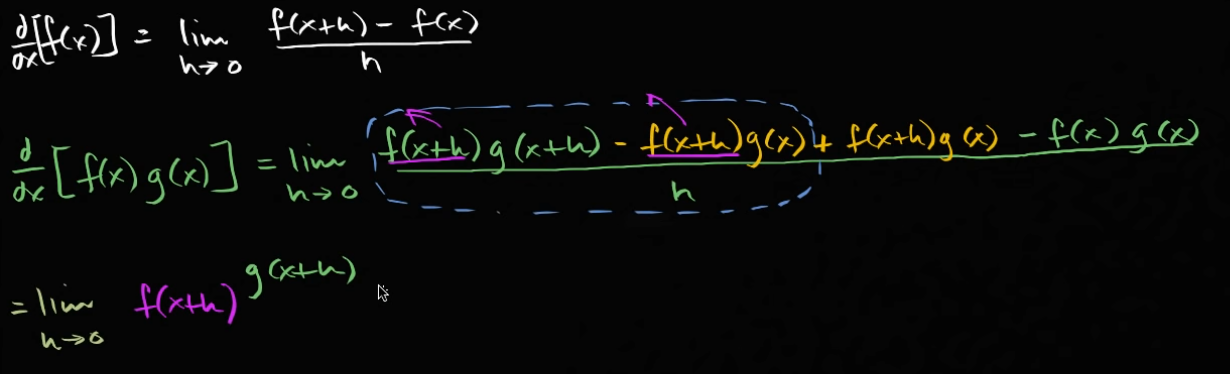 d/dx[f(x)] = lim h→0 (f(x+h) - f(x))/h
d/dx[f(x)g(x)] = lim h→0 (f(x+h)g(x+h) - f(x+h)g(x) + f(x+h)g(x) - f(x)g(x))/h
= lim h→0 f(x+h) g(x+h)